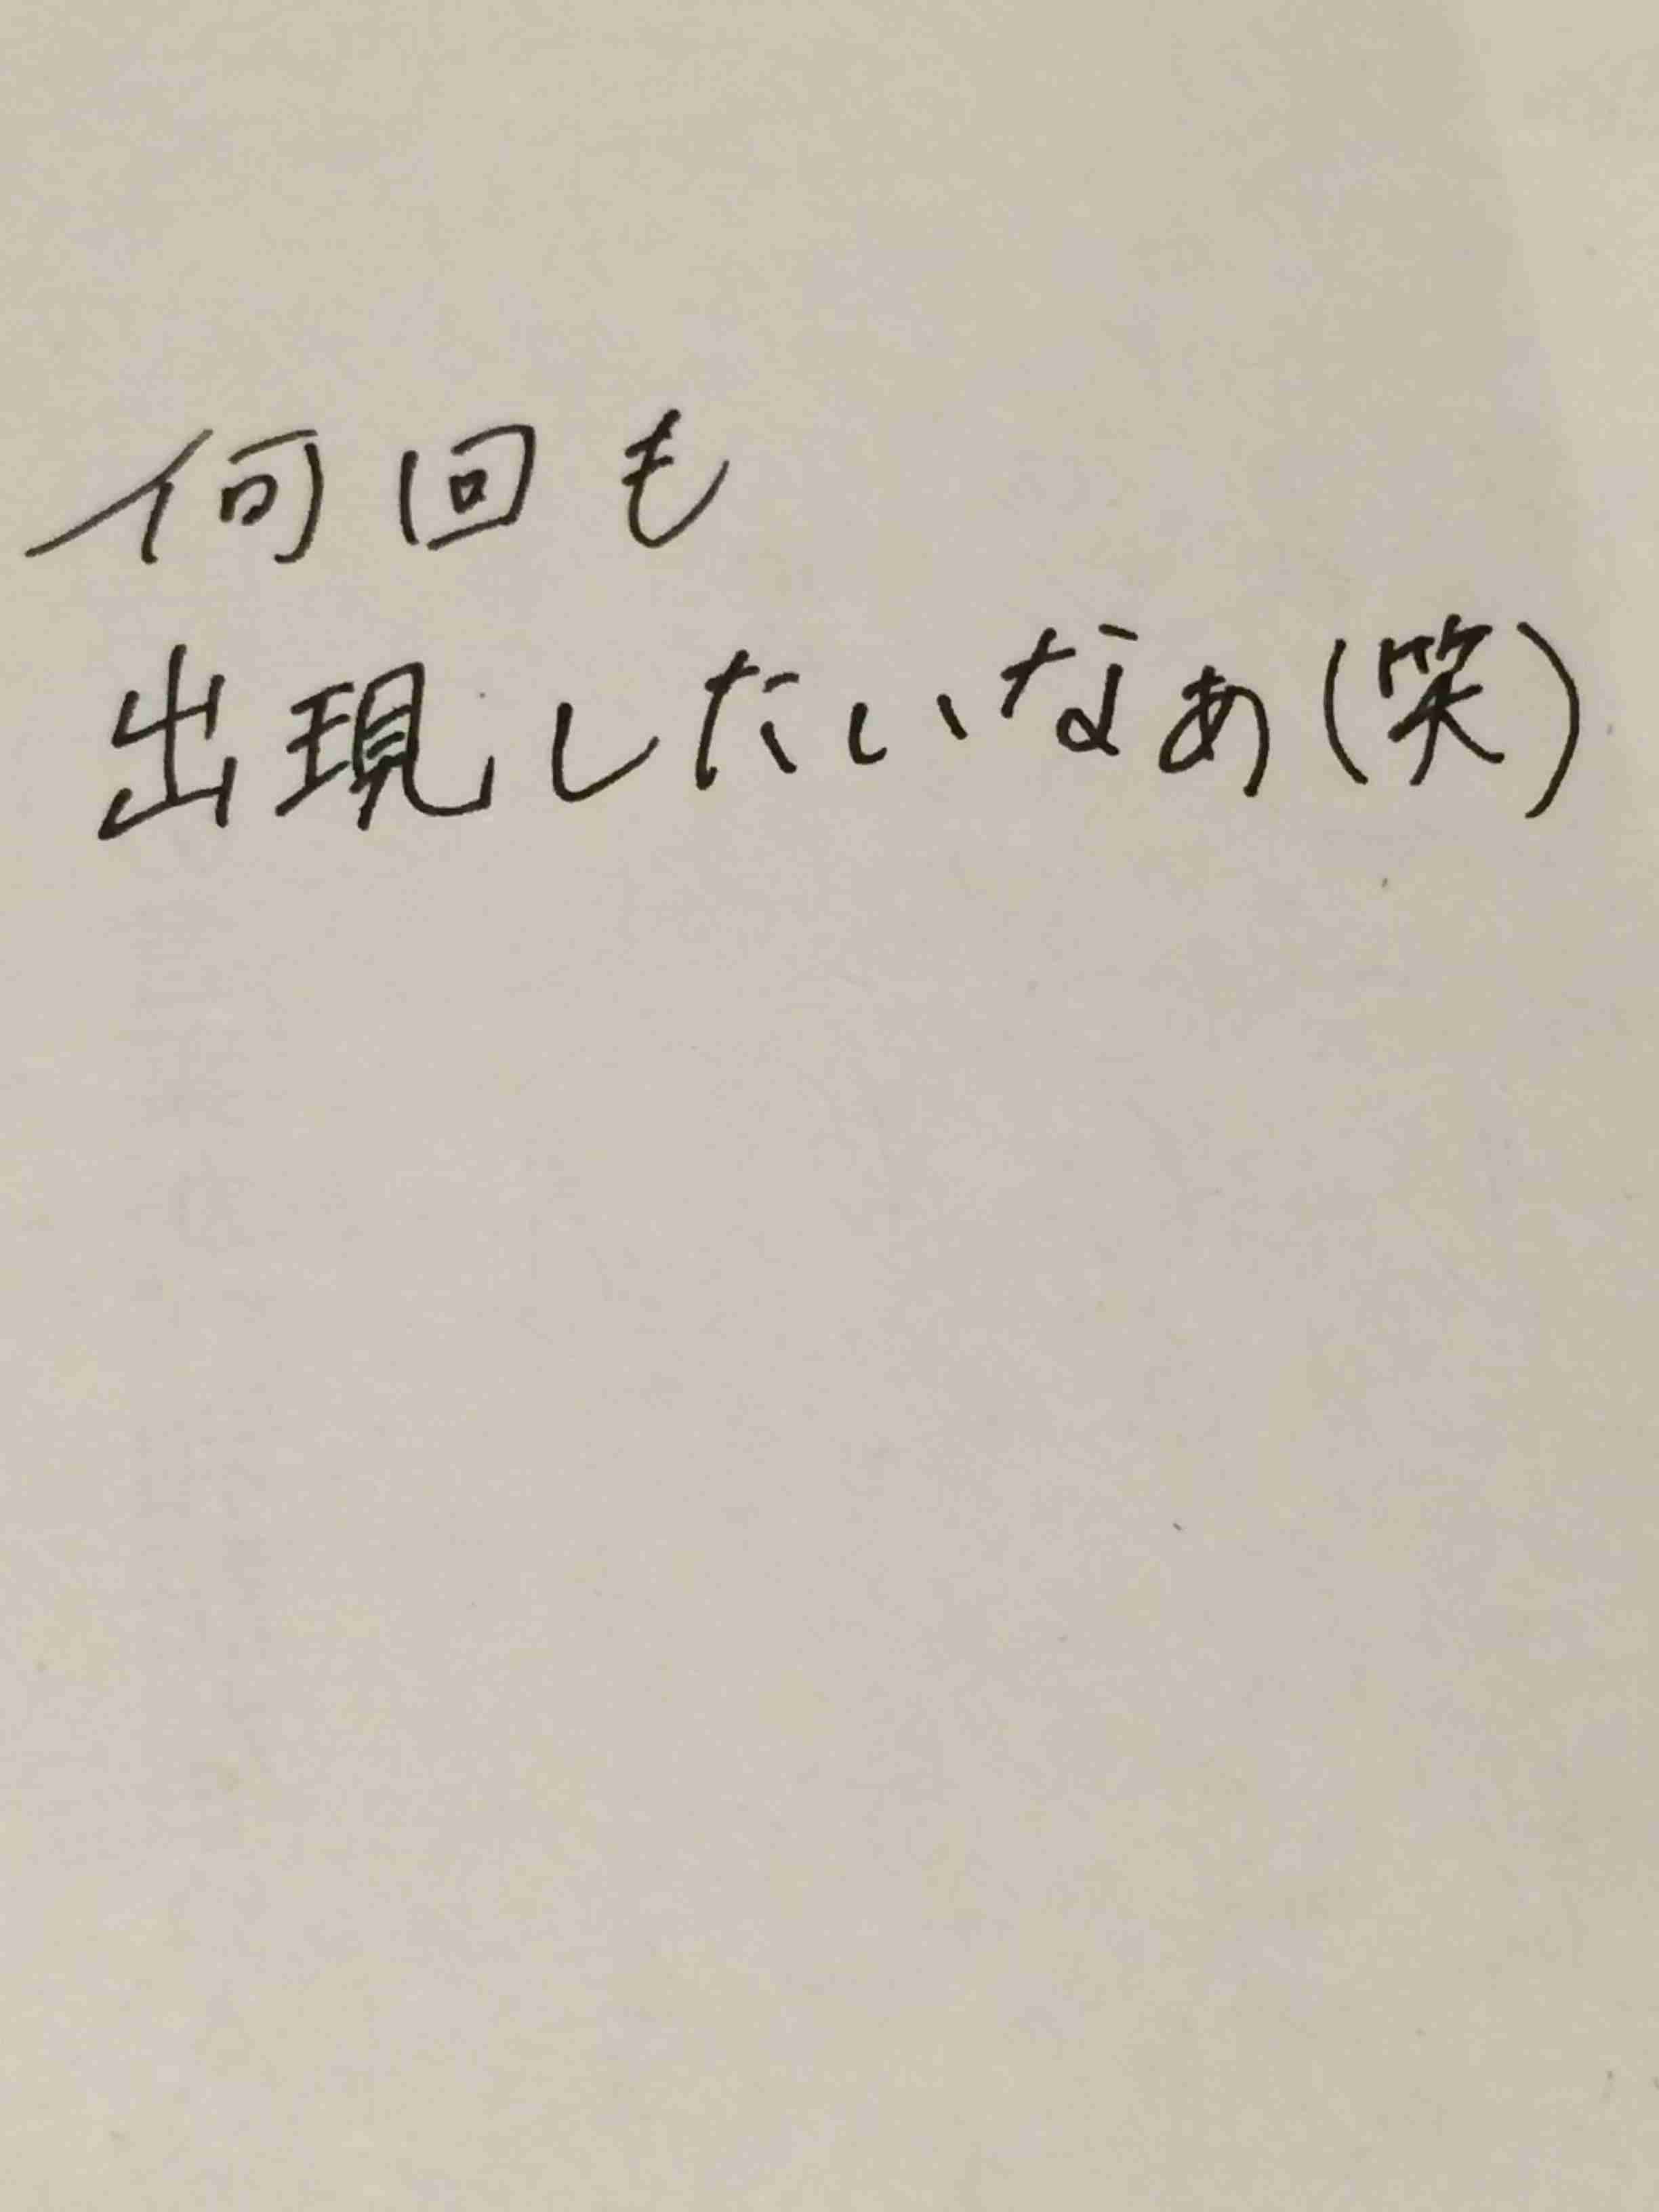 何回も
出現したいなぁ(笑)